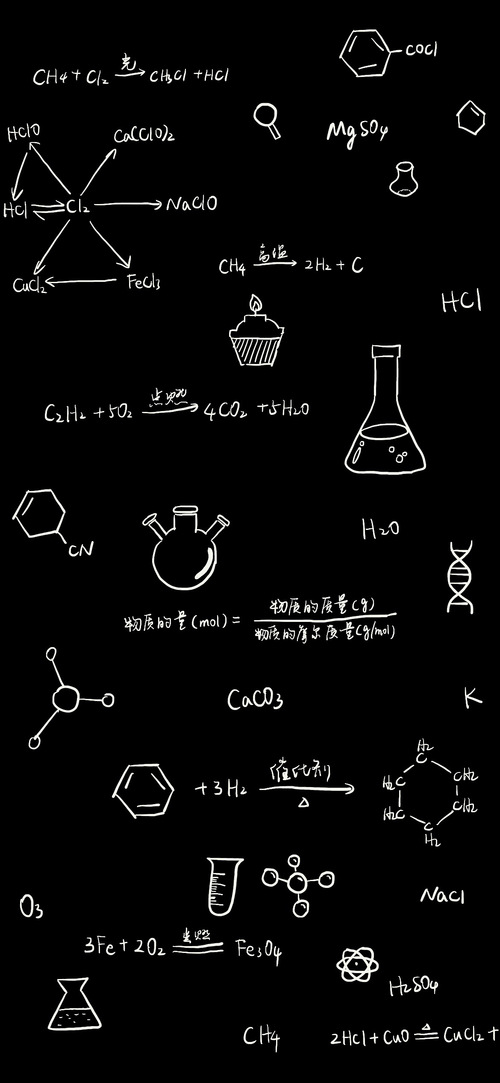 COCl
CH4 + Cl2 光→ CH3Cl + HCl
HClO
Ca(ClO)2
MgSO4
HCl
Cl2
NaClO
CuCl2
FeCl3
CH4 高温→ 2H2 + C
HCl
C2H2 + 5O2 点燃→ 4CO2 + 5H2O
H2O
CN
物质的量(mol) = 物质的质量(g)
物质的摩尔质量(g/mol)
CaCO3
K
+ 3H2 催化剂→
△
H2
C
H2C
CH2
H2C
CH2
C
H2
O3
NaCl
3Fe + 2O2 点燃== Fe3O4
H2SO4
CH4
2HCl + CuO △== CuCl2 +